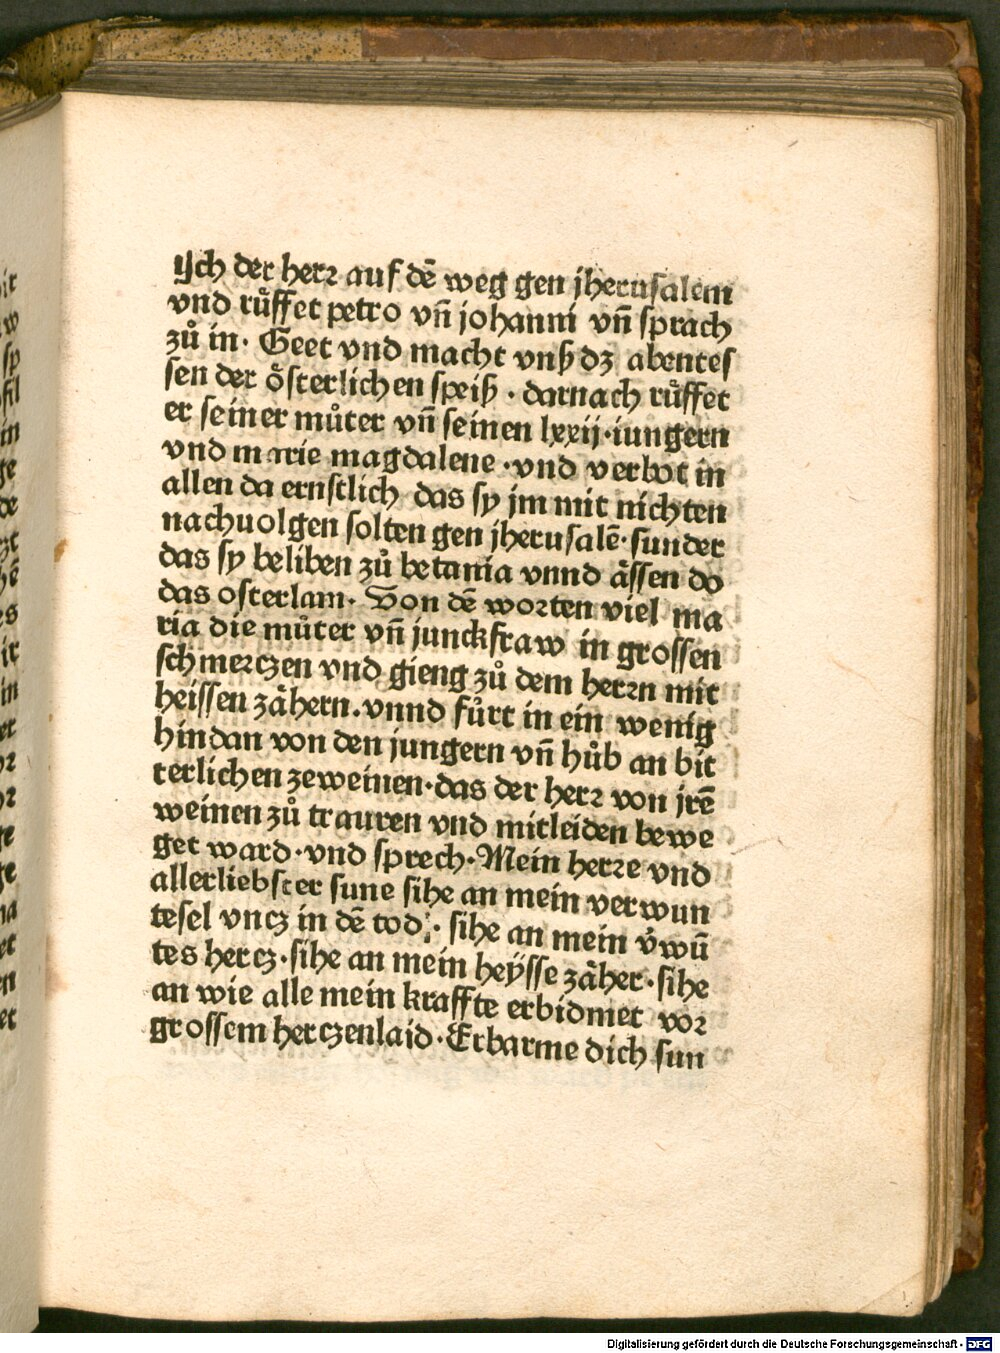 ĳch der herꝛ auf dē weg gen jherusalem
vnd růffet petro vñ johanni vñ sprach
zů in· Geet vnd macht vnß dz abentes
sen der österlichen speiß · darnach růffet
er seiner můter vñ seinen lxxij·iungern
vnd marie magdalene ·vnd verbot in
allen da ernstlich das sy jm mit nichten
nachuolgen solten gen jherusalē·sunder
das sy beliben zů betania vnnd ässen do
das osterlam· Von dē woꝛten viel ma
ria die můter vñ junckfraw in grossen
schmerczen vnd gieng zů dem herꝛn mit
heissen zähern.vnnd fůrt in ein wenig
hindan von den jungern vñ hůb an bit
terlichen zeweinen·das der herꝛ von jrē
weinen zů trauren vnd mitleiden bewe
get ward·vnd sprech·Mein herꝛe vnd
allerliebster sune sihe an mein verwun
tesel vncz in dē tod · sihe an mein v̓wū
tes hercz·sihe an mein heÿsse zäher·sihe
an wie alle mein kraffte erbidmet voꝛ
grossem herczenlaid·Erbarme dich sun
Digitalisierung gefördert durch die Deutsche Forschungsgemeinschaft - DFG